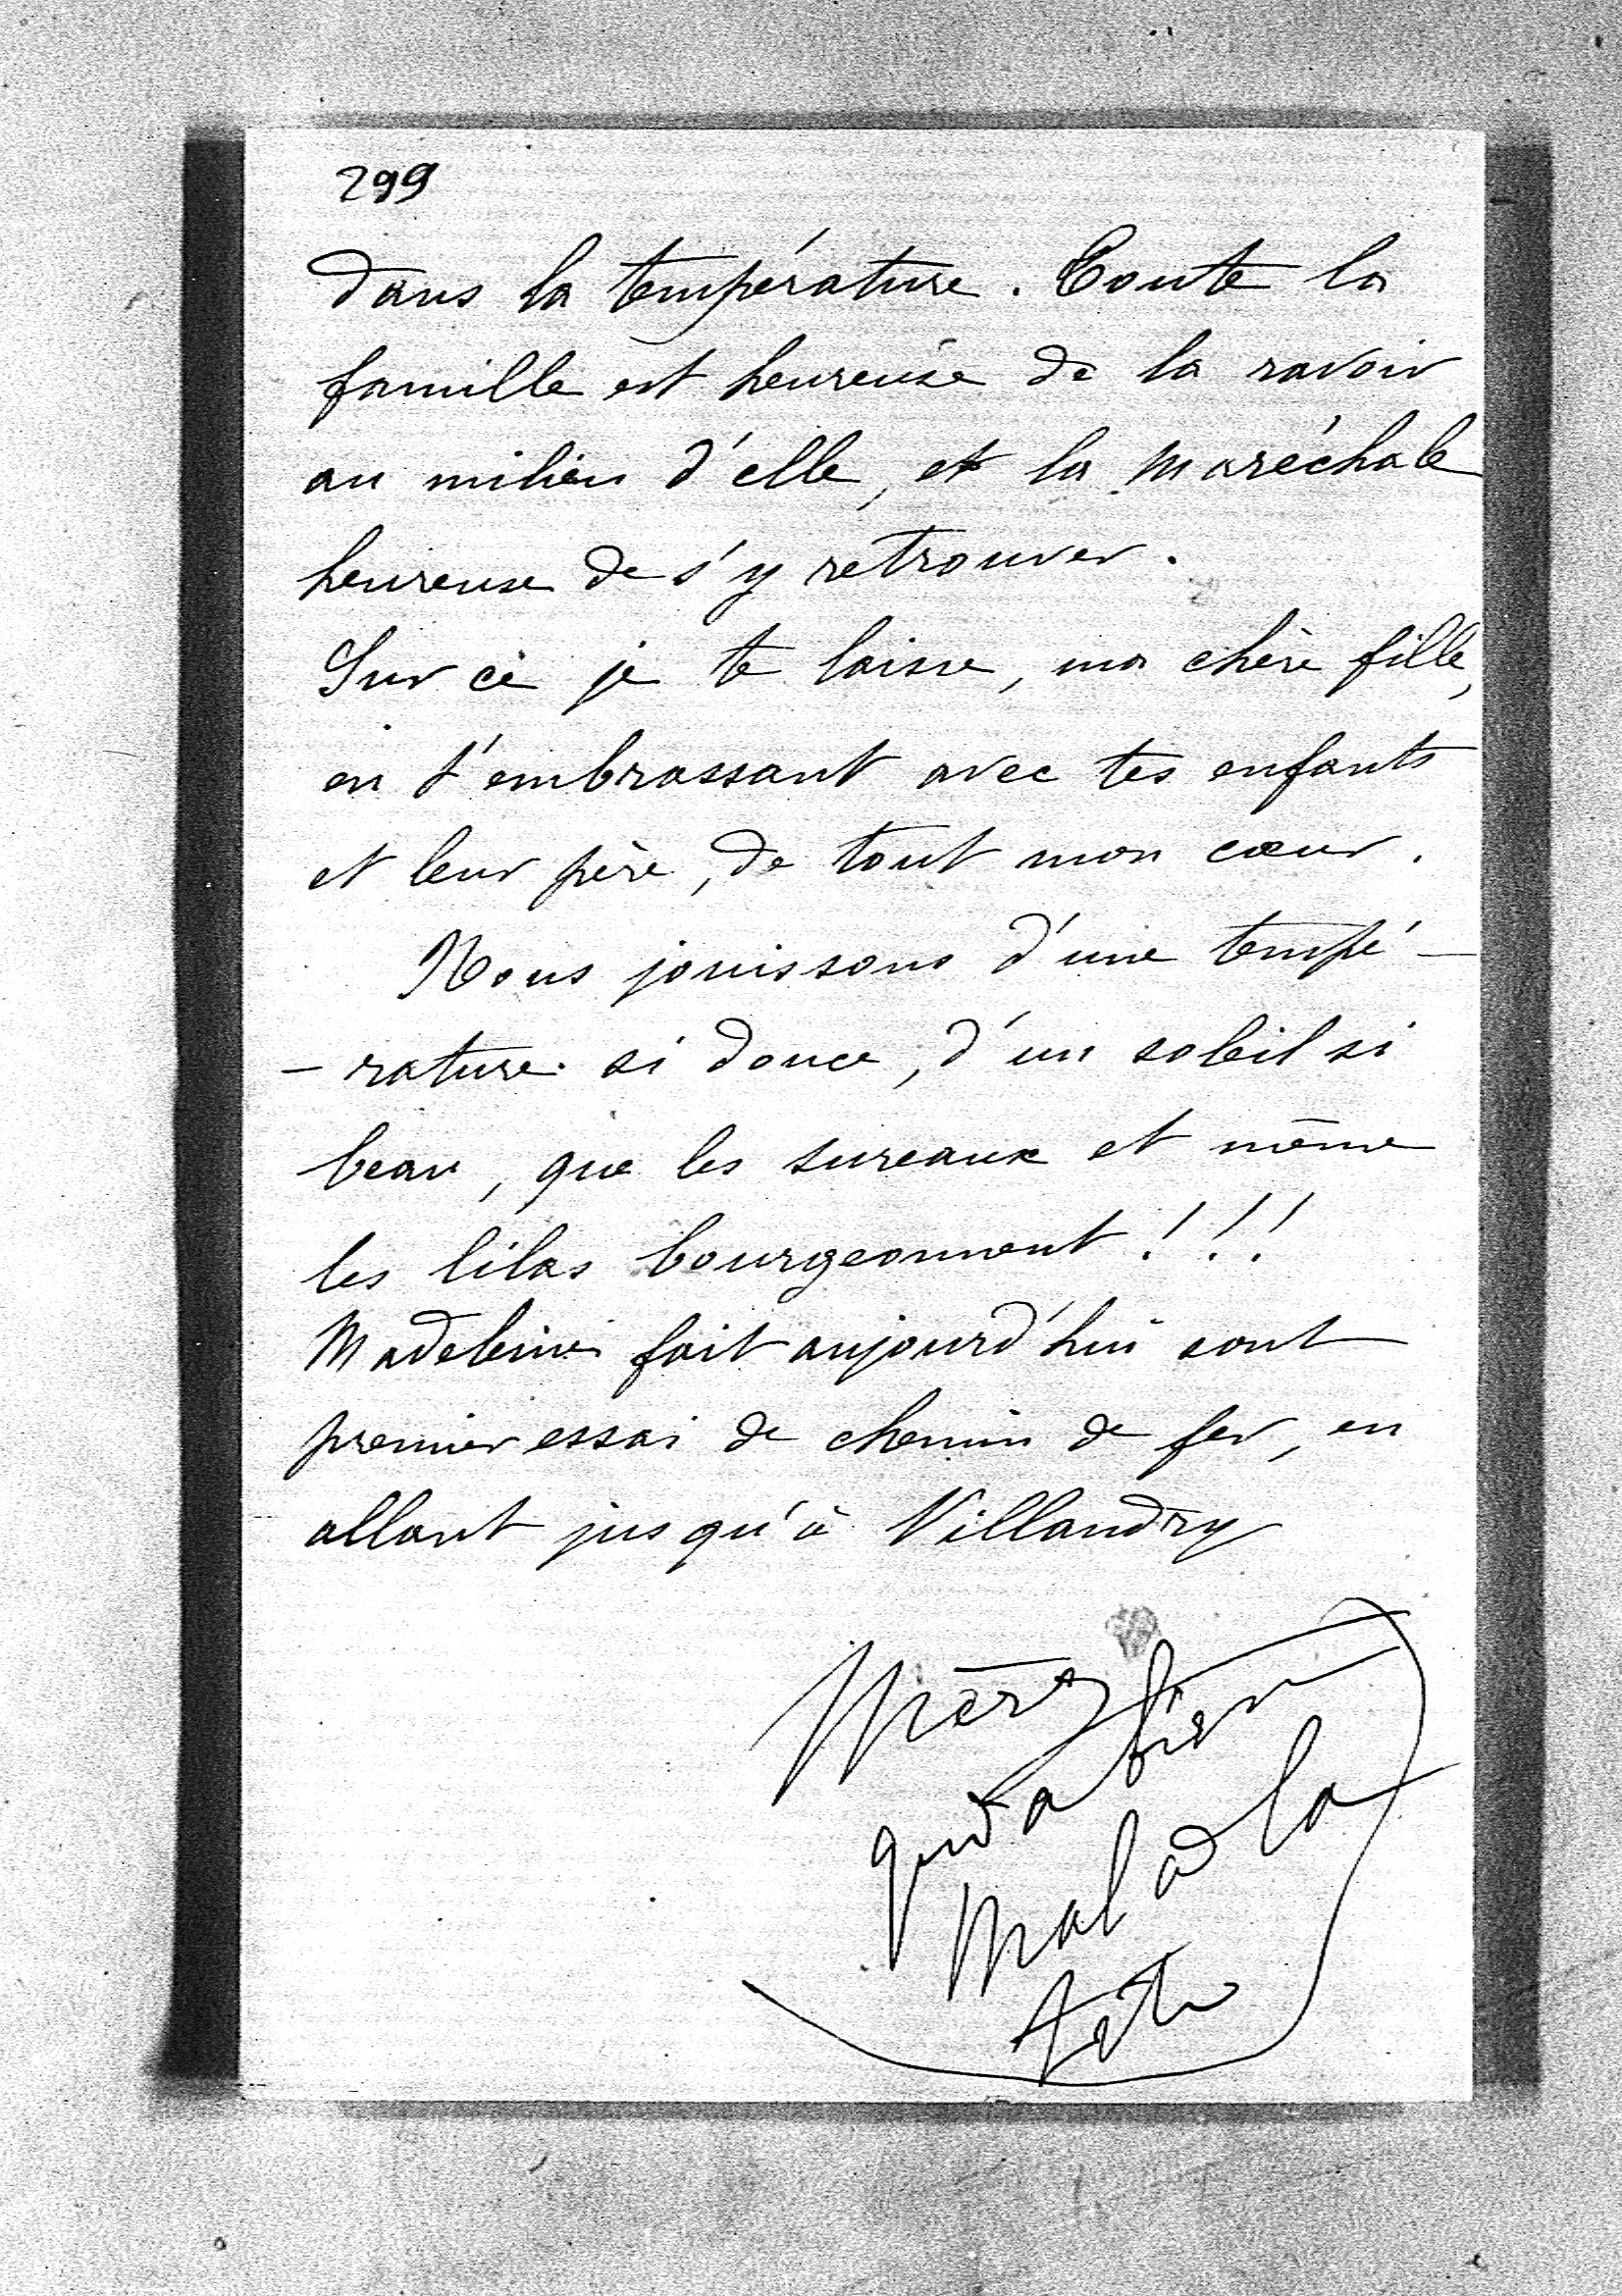 299
dans la température. Toute la
famille est heureuse de la ravoir
au milieu d'elle, et la Maréchale
heureuse de s'y retrouver.
Sur ce je te laisse, ma chère fille,
en t'embrassant avec tes enfants
et leur père, de tout mon cœur.
Nous jouissons d'une tempé-
-rature si douce, d'un soleil si
beau, que les sureaux et même
les lilas bourgeonnent!!!
Madeleine fait aujourd'hui sont
premier essai de chemin de fer, en
allant jusqu'à Villandry
Mère
qui a bien
mal à la
tête